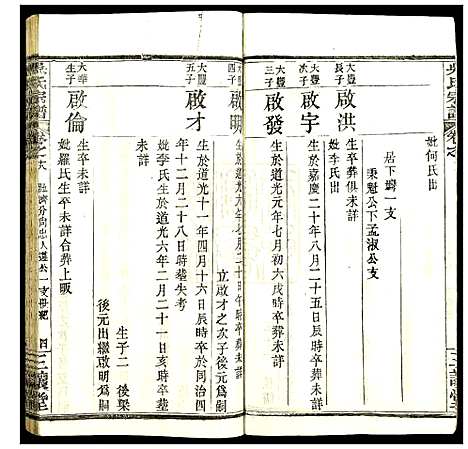 妣何氏出
居下灣一支
秉魁公下孟淑公支
大豐長子
啟洪
生卒葬俱未詳
啟宇
生於嘉慶二十年八月二十五日辰時卒葬未詳
妣李氏出
大豐三子
啟發
生於道光元年七月初六戌時卒葬未詳
四子
啟明
立啟才之次子後元爲嗣
大豐五子
啟才
生於道光十一年四月十六日辰時卒於同治四
年十二月二十八日時塟失考
妣李氏生於道光六年二月二十一日亥時卒塟未詳
生子二
後梁
後元出繼啟明爲嗣
大華生子
啟倫
生卒未詳
妣羅氏生卒未詳合葬上畈
吳氏宗譜
卷之六
四
三讓堂